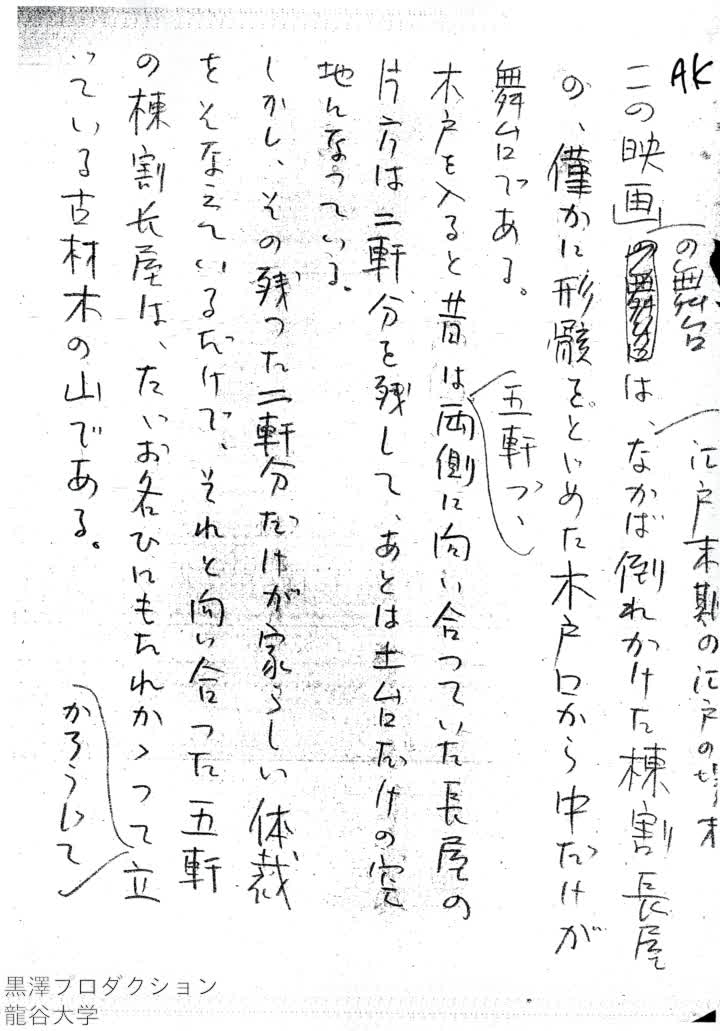 AK
江戸末期の江戸の場末
の舞台
この映画の舞台は、なかば倒れかけた棟割長屋
の、僅かに形骸をとゞめた木戸口から中だけが
舞台である。
五軒づゝ
木戸を入ると昔は両側に向い合つていた長屋の
片方は二軒分を残して、あとは土台だけの空
地になっている。
しかし、その残った二軒分だけが家らしい体裁
をそなえているだけで、それと向い合った五軒
の棟割長屋は、たいお各ひにもたれかゝつて立
かろうじて
っている古材木の山である。
黒澤プロダクション
龍谷大学